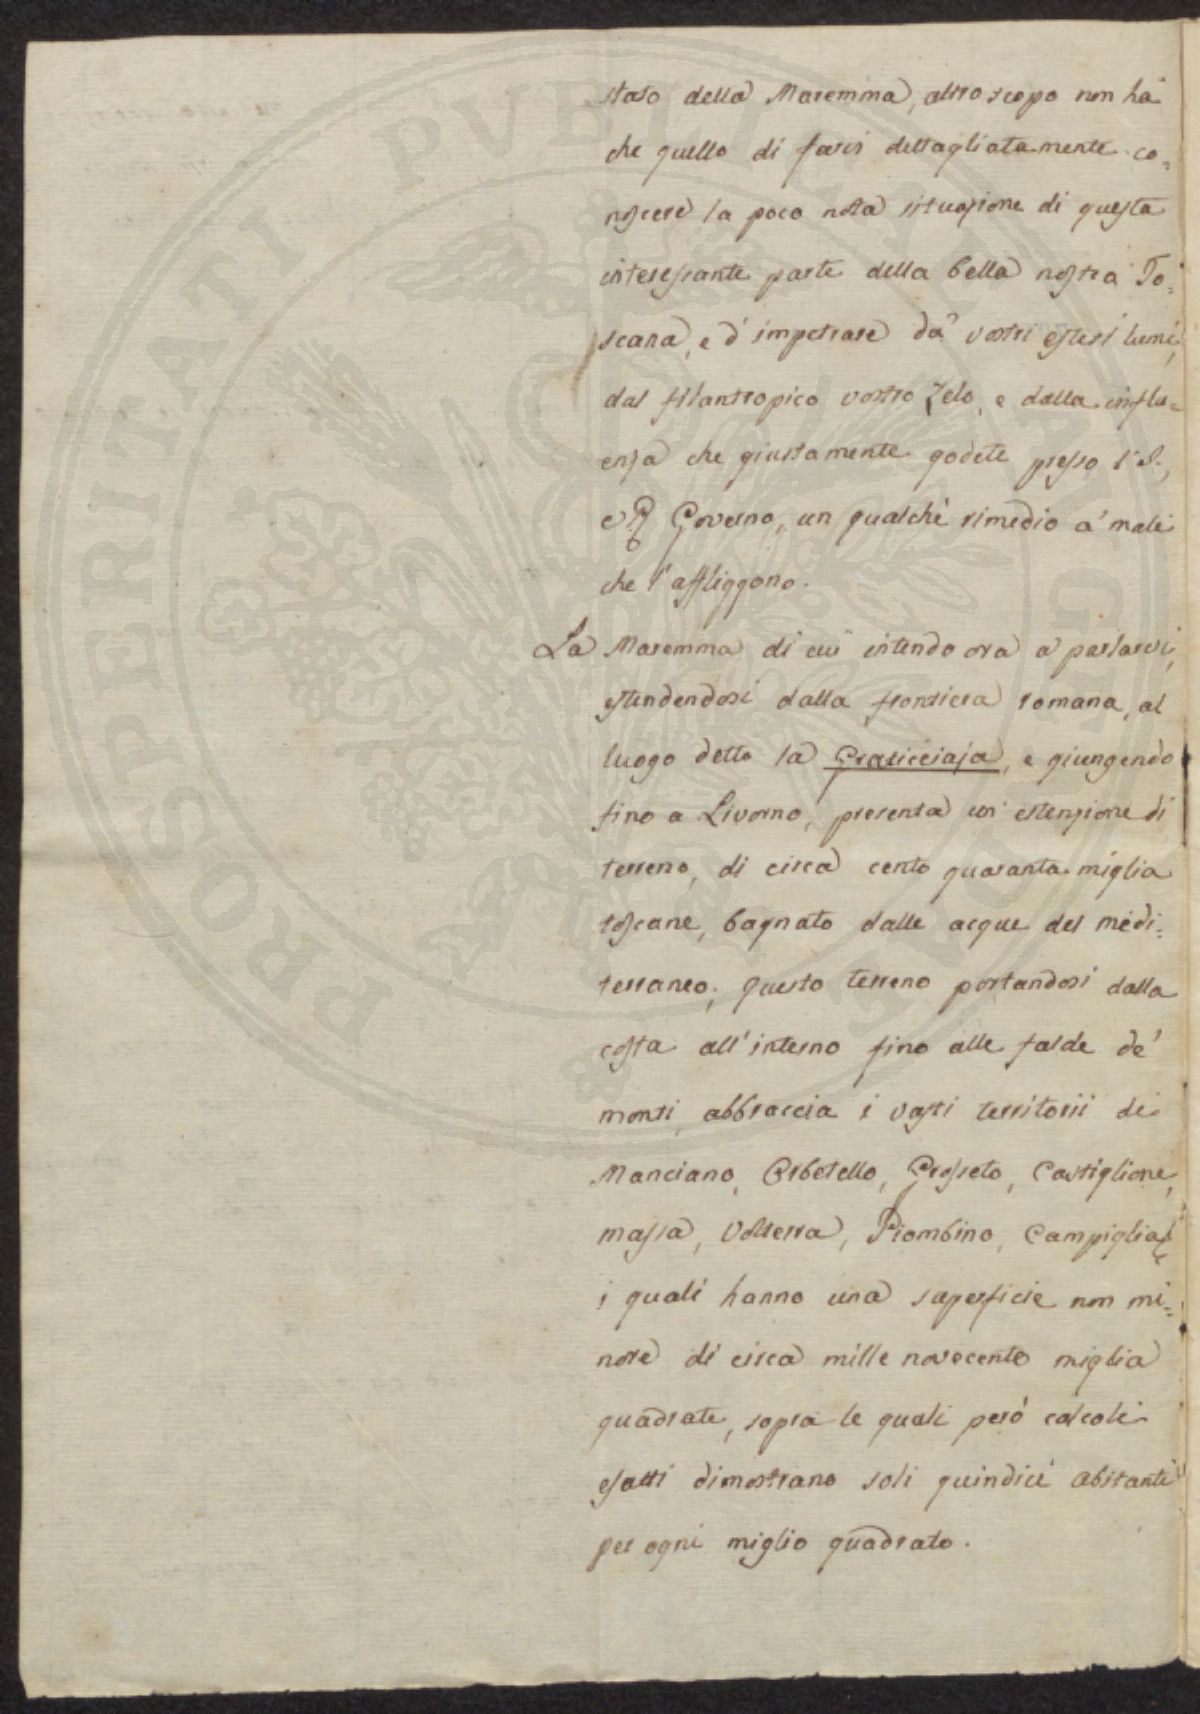 stato della Maremma, altro scopo non hà
che quello di farvi dettagliatamente co=
noscere la poco nota situazione di questa
interessante parte della bella nostra To=
scana, e d'impetrare da' vostri estesi lumi,
dal filantropico vostro zelo, e dalla influ=
enza che giustamente godete presso l'I.
e R Governo, un qualche rimedio a' mali
che l'affliggono.
La Maremma di cui intendo ora a parlarvi,
estendendosi dalla frontiera romana, al
luogo detto la Graticciaja, e giungendo
fino a Livorno, presenta un' estenzione di
terreno, di circa cento quaranta miglia
toscane, bagnato dalle acque del medi=
terraneo; questo terreno portandosi dalla
costa all'interno fino alle falde de'
monti, abbraccia i vasti territorii di
Manciano, Orbetello, Grosseto, Castiglione,
massa, Volterra, Piombino, Campiglia
i quali hanno una superficie non mi=
nore di circa mille novecento miglia
quadrate, sopra le quali però calcoli
esatti dimostrano soli quindici abitanti
per ogni miglio quadrato.
PROSPERITATI PVBLICAE AVGENDAE